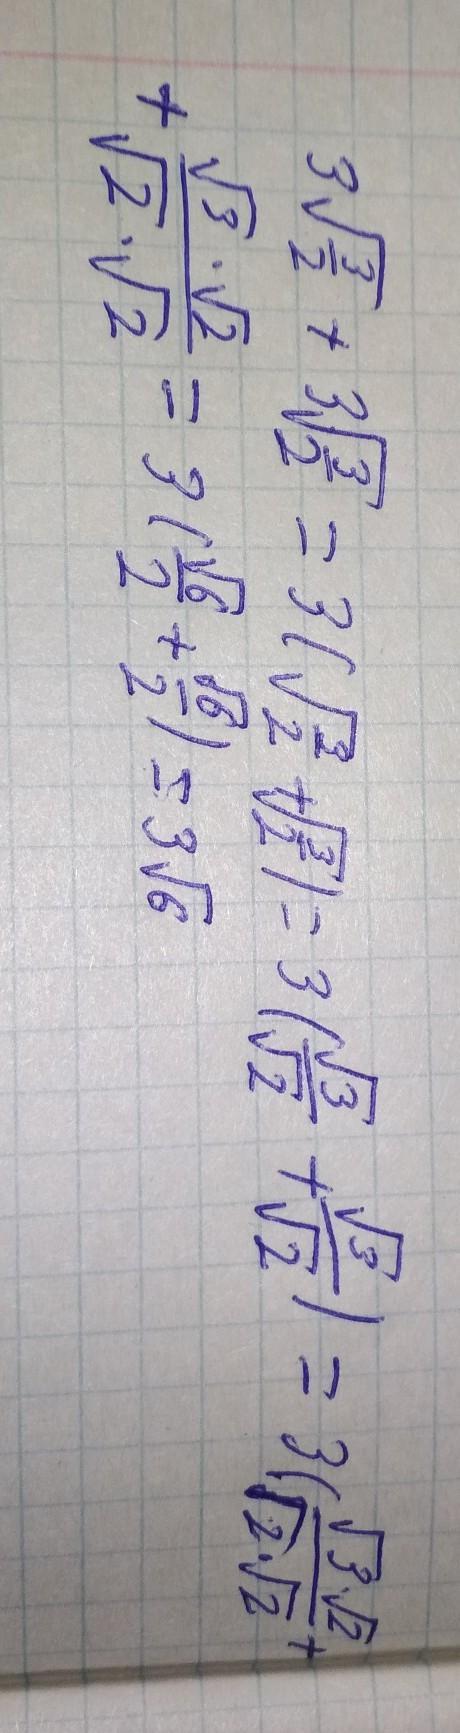 3√(3/2) + 3√(3/2) = 3(√(3/2) + √(3/2)) = 3(√3/√2 + √3/√2) = 3(√3·√2/√2·√2 +
+ √3·√2/√2·√2 = 3(√6/2 + √6/2) = 3√6